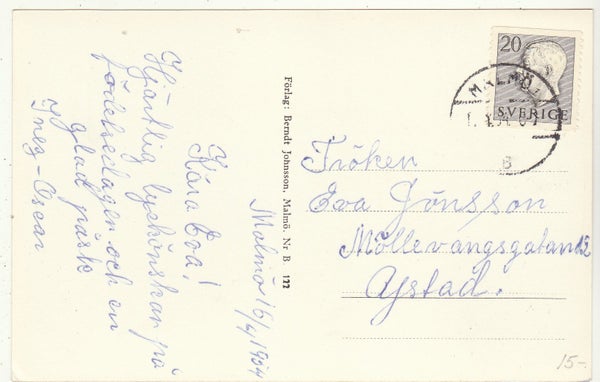 Malmö 16/4 1954
Kära Eva!
Hjärtlig lyckönskan på
födelsedagen och en
glad påsk
Inez - Oscar
Förlag: Berndt Johnsson, Malmö. Nr B 122
20
SVERIGE
MALMÖ 1
Fröken
Eva Jönsson
Möllevangsgatan 12
Ystad.
15-